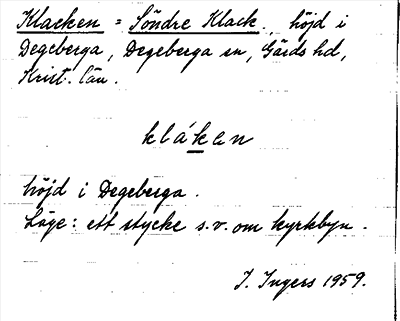 Klacken = Söndre Klack, höjd i
Degeberga, Degeberga sn, Gärds hd,
Krist. län.
klákan
höjd i Degeberga.
Läge: ett stycke s.v. om kyrkbyn.
I. Ingers 1959.